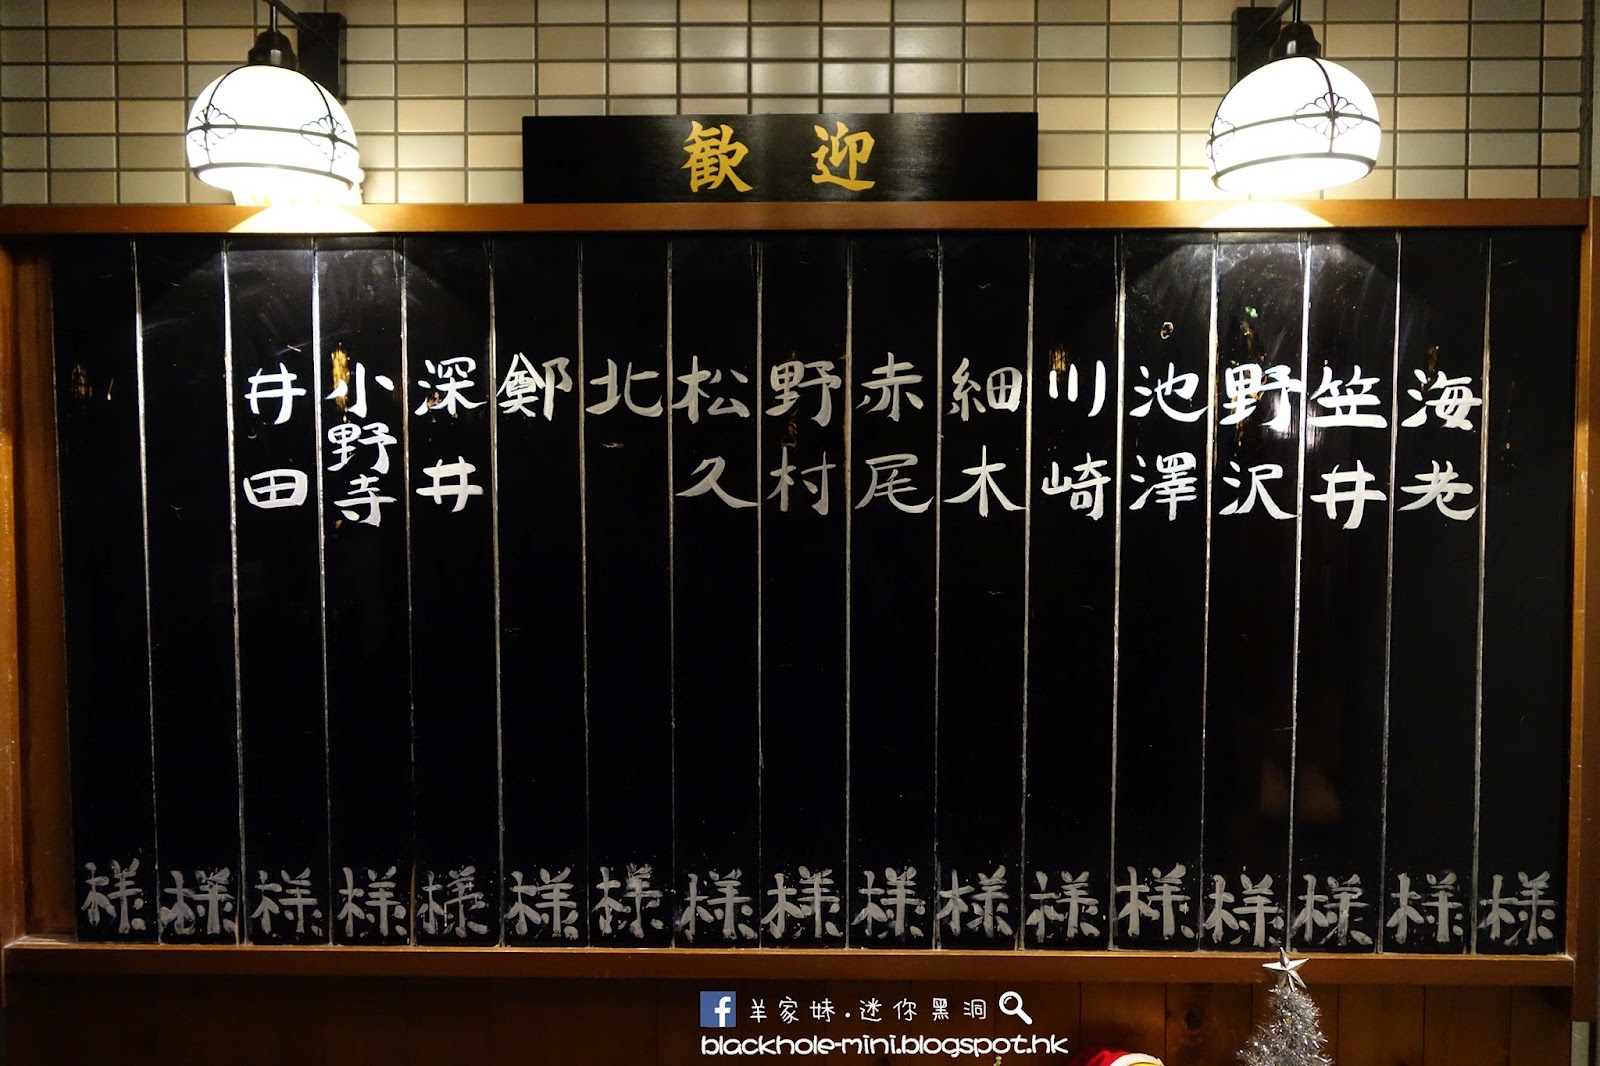 歓迎
様
海老様
笠井様
野沢様
池澤様
川崎様
細木様
赤尾様
野村様
松久様
北様
鄭様
深井様
小野寺様
井田様
様
様
羊家妹.迷你黑洞
blackhole-mini.blogspot.hk